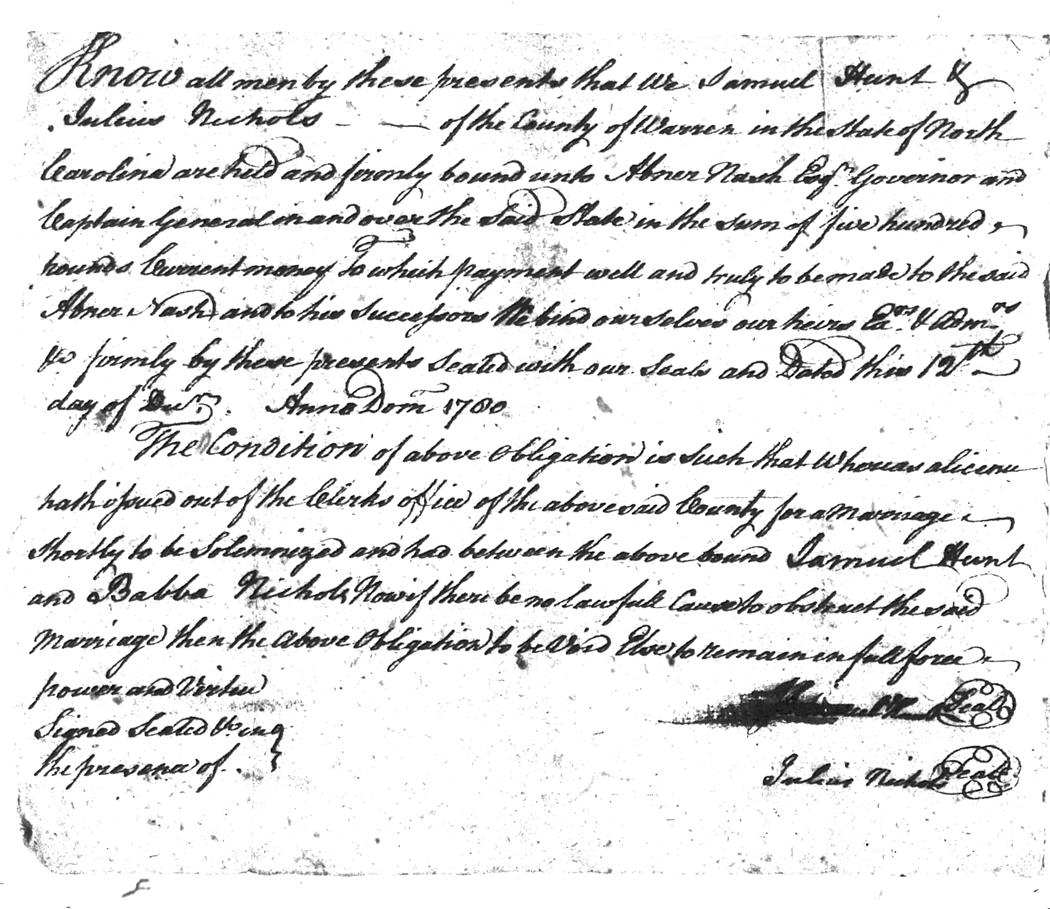 Know all men by these presents that We Samuel Hunt &
Julius Nichols - — of the County of Warren in the State of North
Carolina are held and firmly bound unto Abner Nash Esqr. Governor and
Captain General in and over the said State in the sum of five hundred
pounds Current money To which payment well and truly to be made to the said
Abner Nash and to his Successors We bind ourselves our heirs Exrs. & Admrs
&c firmly by these presents Sealed with our Seals and Dated this 12th
day of Decr. Anno Dom 1780
The Condition of above Obligation is Such that Whereas a licence
hath issued out of the Clerks office of the abovesaid County for a Marriage
Shortly to be Solemnized and had between the above bound Samuel Hunt
and Babba Nichols Now if there be no lawfull Cause to obstruct the said
Marriage then the above Obligation to be Void Else to remain in full force
power and Virtue
Signed Sealed &c in
the presence of.
Seal
Julius Nichols Seal